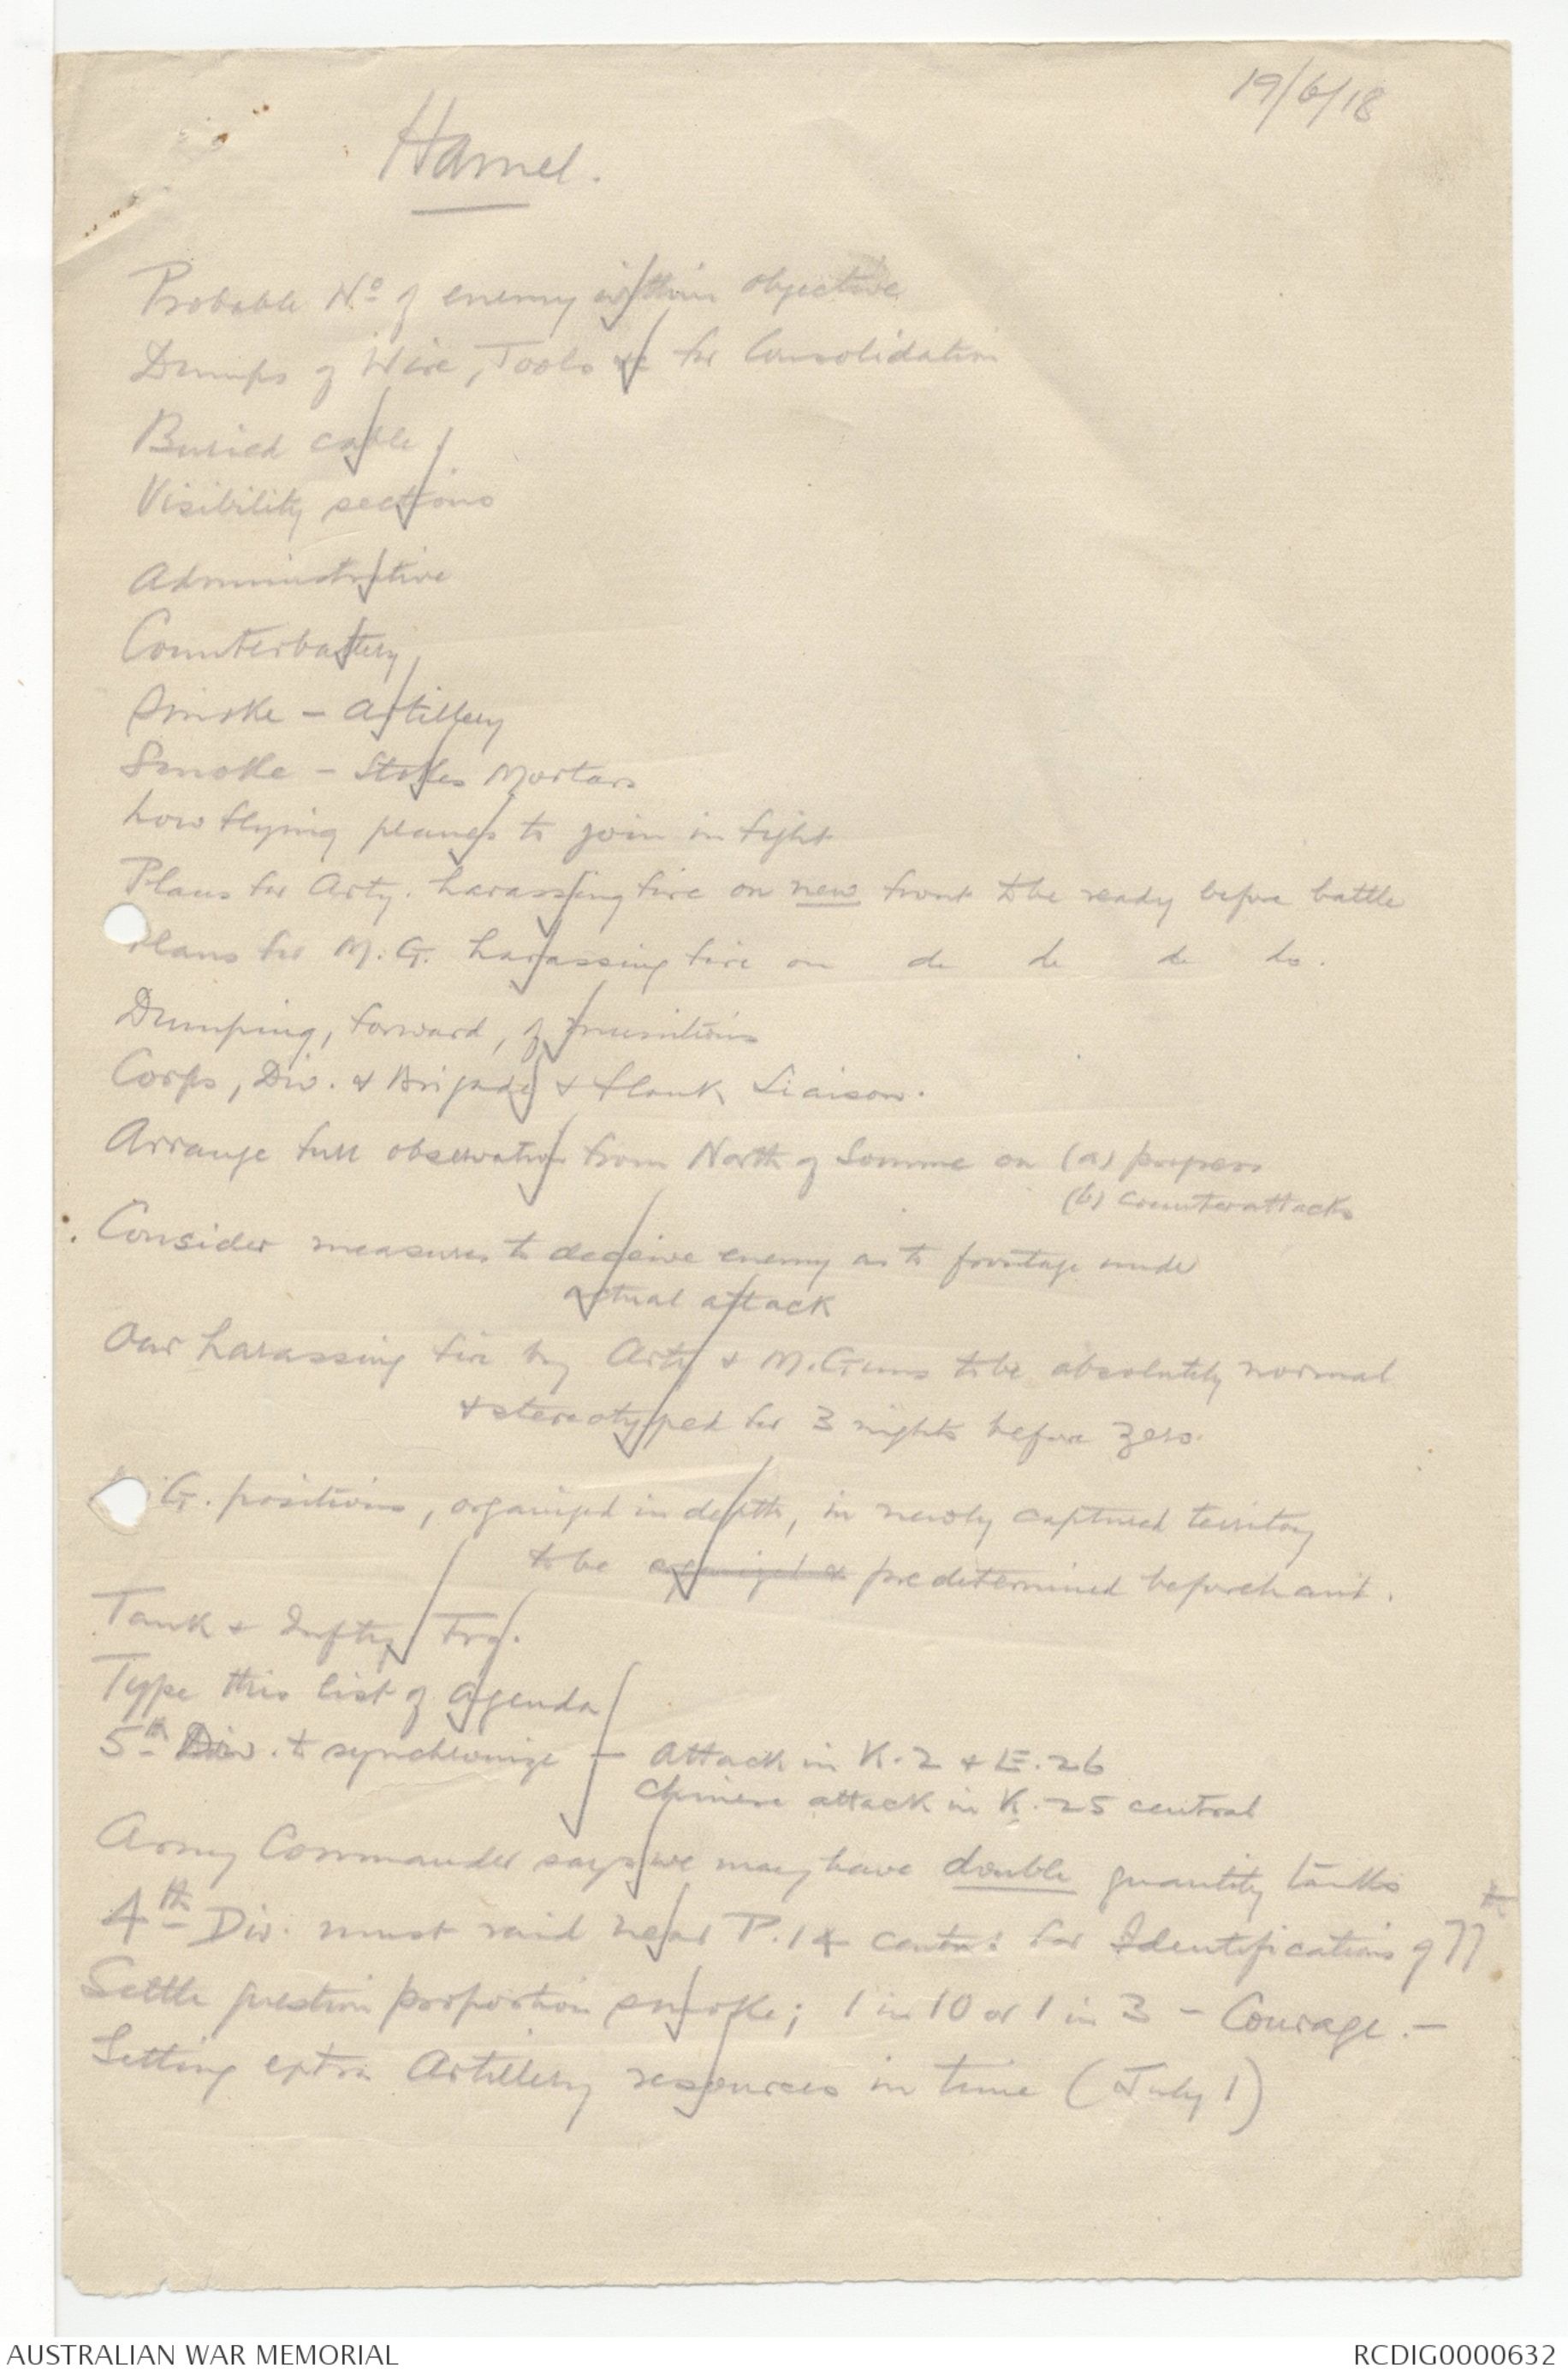 19/6/18
Hamel.
Probable No of enemy within objective
Dumps of Wire, Tools &c for Consolidation
Buried cable
Visibility sections
Administrative
Counterbattery
Smoke - Artillery
Smoke - Stokes Mortars
Low flying planes to join in fight
Plans for Arty. harassing fire on new front to be ready before battle
Plans for M.G. harassing fire on do do do do.
Dumping, forward, of munitions
Corps, Div. & Brigade & flank Liaison.
Arrange full observation from North of Somme on (a) progress
(b) counterattacks
Consider measures to deceive enemy as to frontage under
actual attack
Our harassing fire by Arty & M. Guns to be absolutely normal
& stereotyped for 3 nights before zero.
G. positions, organized in depth, in newly captured territory
to be organized & predetermined beforehand.
Tank & Inftry Trg.
Type this list of agenda
5th Div. to synchronize - attack in K.2 & E.26
Chinese attack in K.25 central
Army Commander says we may have double quantity tanks
4th Div. must raid near P.14 central for Identifications of 77th
Settle question proportion smoke; 1 in 10 or 1 in 3 - Courage. -
Getting extra Artillery resources in time (July 1)
AUSTRALIAN WAR MEMORIAL
RCDIG0000632